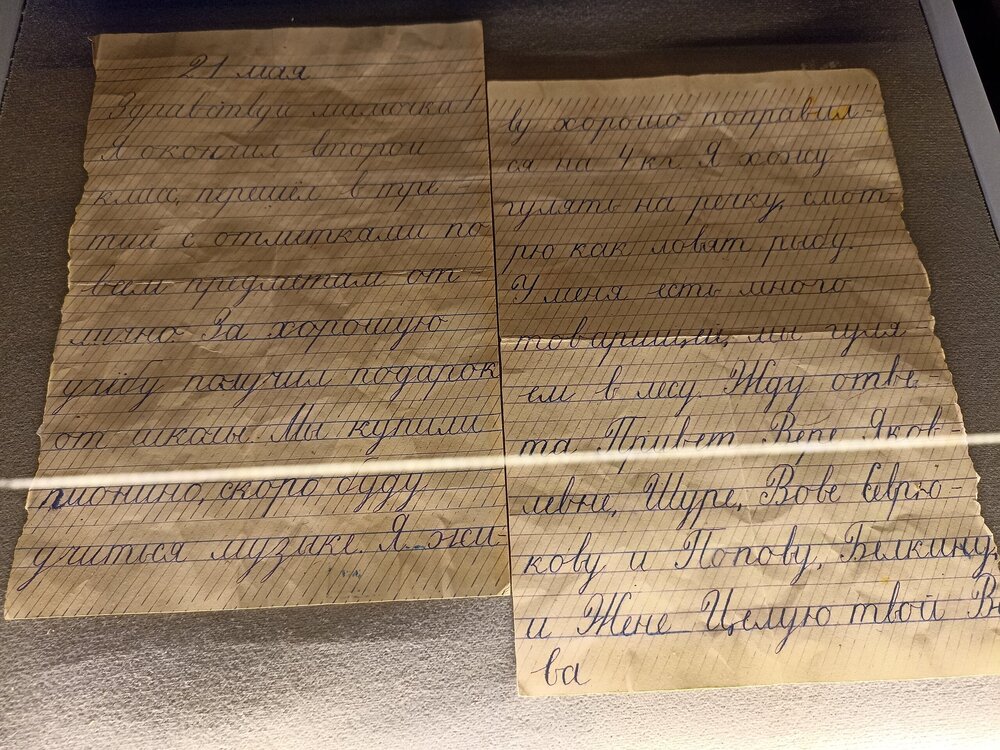 21 мая
Здравствуй мамочка!
Я окончил второй
класс, перешёл в тре-
тий с отметками по
всем предметам от
лично. За хорошую
учёбу получил подарок
от школы. Мы купили
пионино, скоро буду
учиться музыке. Я жи-
ву хорошо поправил-
ся на 4 кг. Я хожу
гулять на речку, смот
рю как ловят рыбу.
У меня есть много
товарищей, мы гуля
ем в лесу. Жду отве
та Привет Вере Яков
левне, Шуре, Вове Севрю-
кову и Попову, Белкину,
и Жене Целую твой Во
ва